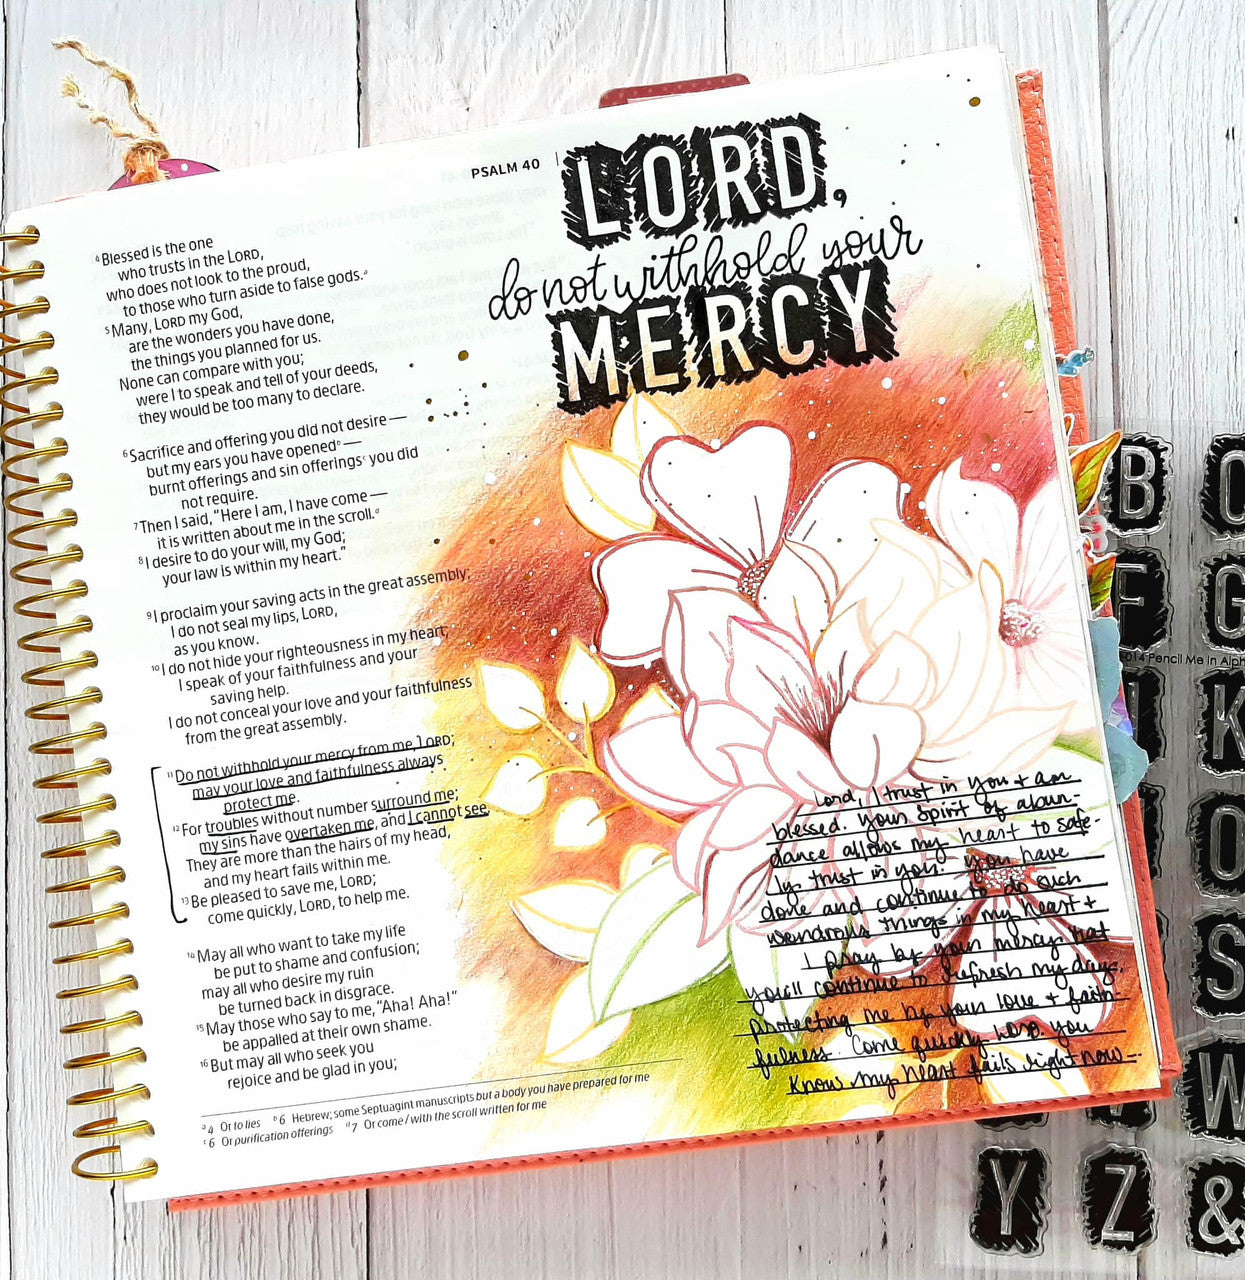 PSALM 40
LORD,
do not withhold your
MERCY
⁴Blessed is the one
who trusts in the LORD,
who does not look to the proud,
to those who turn aside to false gods.ᵃ
⁵Many, LORD my God,
are the wonders you have done,
the things you planned for us.
None can compare with you;
were I to speak and tell of your deeds,
they would be too many to declare.
⁶Sacrifice and offering you did not desire —
but my ears you have openedᵇ —
burnt offerings and sin offeringsᶜ you did
not require.
⁷Then I said, “Here I am, I have come —
it is written about me in the scroll.ᵈ
⁸I desire to do your will, my God;
your law is within my heart.”
⁹I proclaim your saving acts in the great assembly;
I do not seal my lips, LORD,
as you know.
¹⁰I do not hide your righteousness in my heart;
I speak of your faithfulness and your
saving help.
I do not conceal your love and your faithfulness
from the great assembly.
¹¹Do not withhold your mercy from me, LORD;
may your love and faithfulness always
protect me.
¹²For troubles without number surround me;
my sins have overtaken me, and I cannot see.
They are more than the hairs of my head,
and my heart fails within me.
¹³Be pleased to save me, LORD;
come quickly, LORD, to help me.
¹⁴May all who want to take my life
be put to shame and confusion;
may all who desire my ruin
be turned back in disgrace.
¹⁵May those who say to me, “Aha! Aha!”
be appalled at their own shame.
¹⁶But may all who seek you
rejoice and be glad in you;
ᵃ 4 Or to lies ᵇ 6 Hebrew; some Septuagint manuscripts but a body you have prepared for me
ᶜ 6 Or purification offerings ᵈ 7 Or come / with the scroll written for me
Lord, I trust in you + am
blessed. Your Spirit of abun-
dance allows my heart to safe-
ly trust in you. You have
done and continue to do such
wondrous things in my heart +
I pray by your mercy that
you'll continue to refresh my days,
protecting me by your love + faith-
fulness. Come quickly Lord, you
know my heart fails right now—
B
F G
2014 Pencil Me In Alph
K
O
S
W
Y Z &